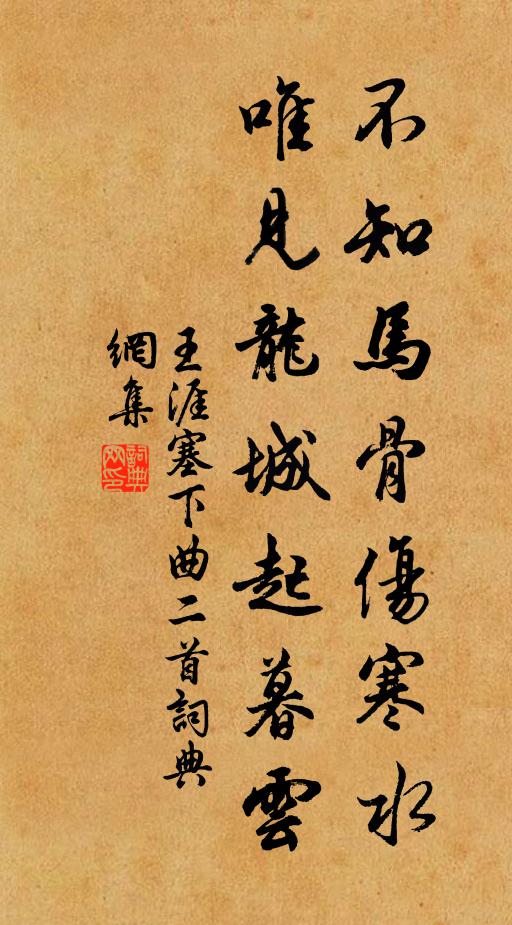 不知馬骨傷寒水
唯見龍城起暮雲
王涯塞下曲二首詞典
網集
詞典
网印